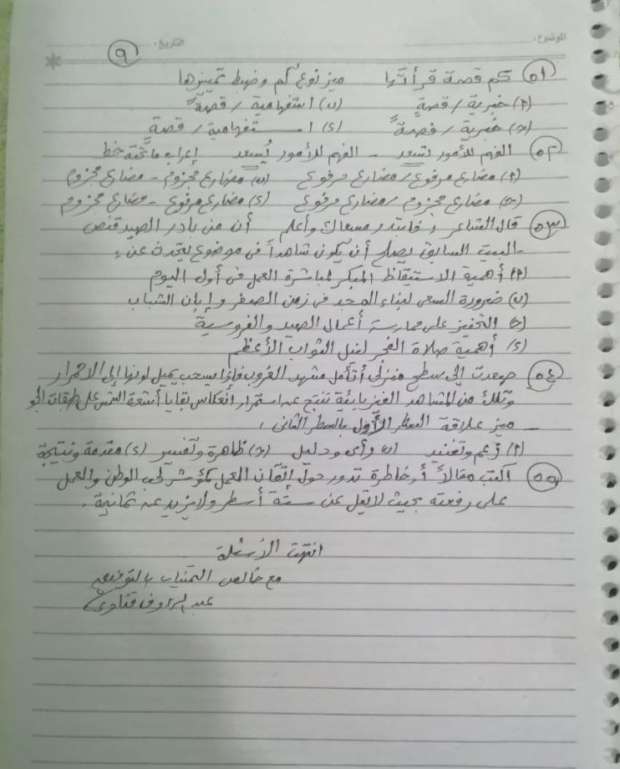 الموضوع: التاريخ:
٩
٥١ كم قصة قرأتها ميز نوع كم وضبط تمييزها
(٢) خبرية / قصةٍ (ب) استفهامية / قصةً
(ج) خبرية / قصةً (د) استفهامية / قصةٍ
٥٢ الفهم للأمور تسعد - الفهم للأمور يُسعد إعراب ما تحته خط
(٢) مضارع مرفوع / مضارع مرفوع (ب) مضارع مجزوم - مضارع مجزوم
(ج) مضارع مجزوم / مضارع مرفوع (د) مضارع مرفوع - مضارع مجزوم
٥٣ قال الشاعر : فابتدر مسعاك واعلم أن من بادر الصيد قنص
- البيت السابق يصلح أن يكون شاهداً في موضوع يتحدث عن :
(٢) أهمية الاستيقاظ المبكر لمباشرة العمل في أول اليوم
(ب) ضرورة السعى لبناء المجد في زمن الصغر وإبان الشباب
(ج) التحفيز على ممارسة أعمال الصيد والفروسية
(د) أهمية صلاة الفجر لنيل الثواب الأعظم
٥٤ صعدت إلى سطح منزلي أتأمل مشهد الغروب فإذا بسحب يميل لونها إلى الاحمرار
وتلك من المشاهد الفيزيائية تنتج عن استمرار انعكاس بقايا أشعة الشمس على طبقات الجو
- ميز علاقة السطر الأول بالسطر الثاني :
(٢) زعم وتفنيد (ب) رأى ودليل (ج) ظاهرة وتفسير (د) مقدمة ونتيجة
٥٥ اكتب مقالاً أو خاطرة تدور حول إتقان العمل كمؤشر لحب الوطن والعمل
على رفعته بحيث لا يقل عن ستة أسطر ولا يزيد عن ثمانية .
انتهت الأسئلة
مع خالص التمنيات بالتوفيق
عبد الرؤوف قناوى